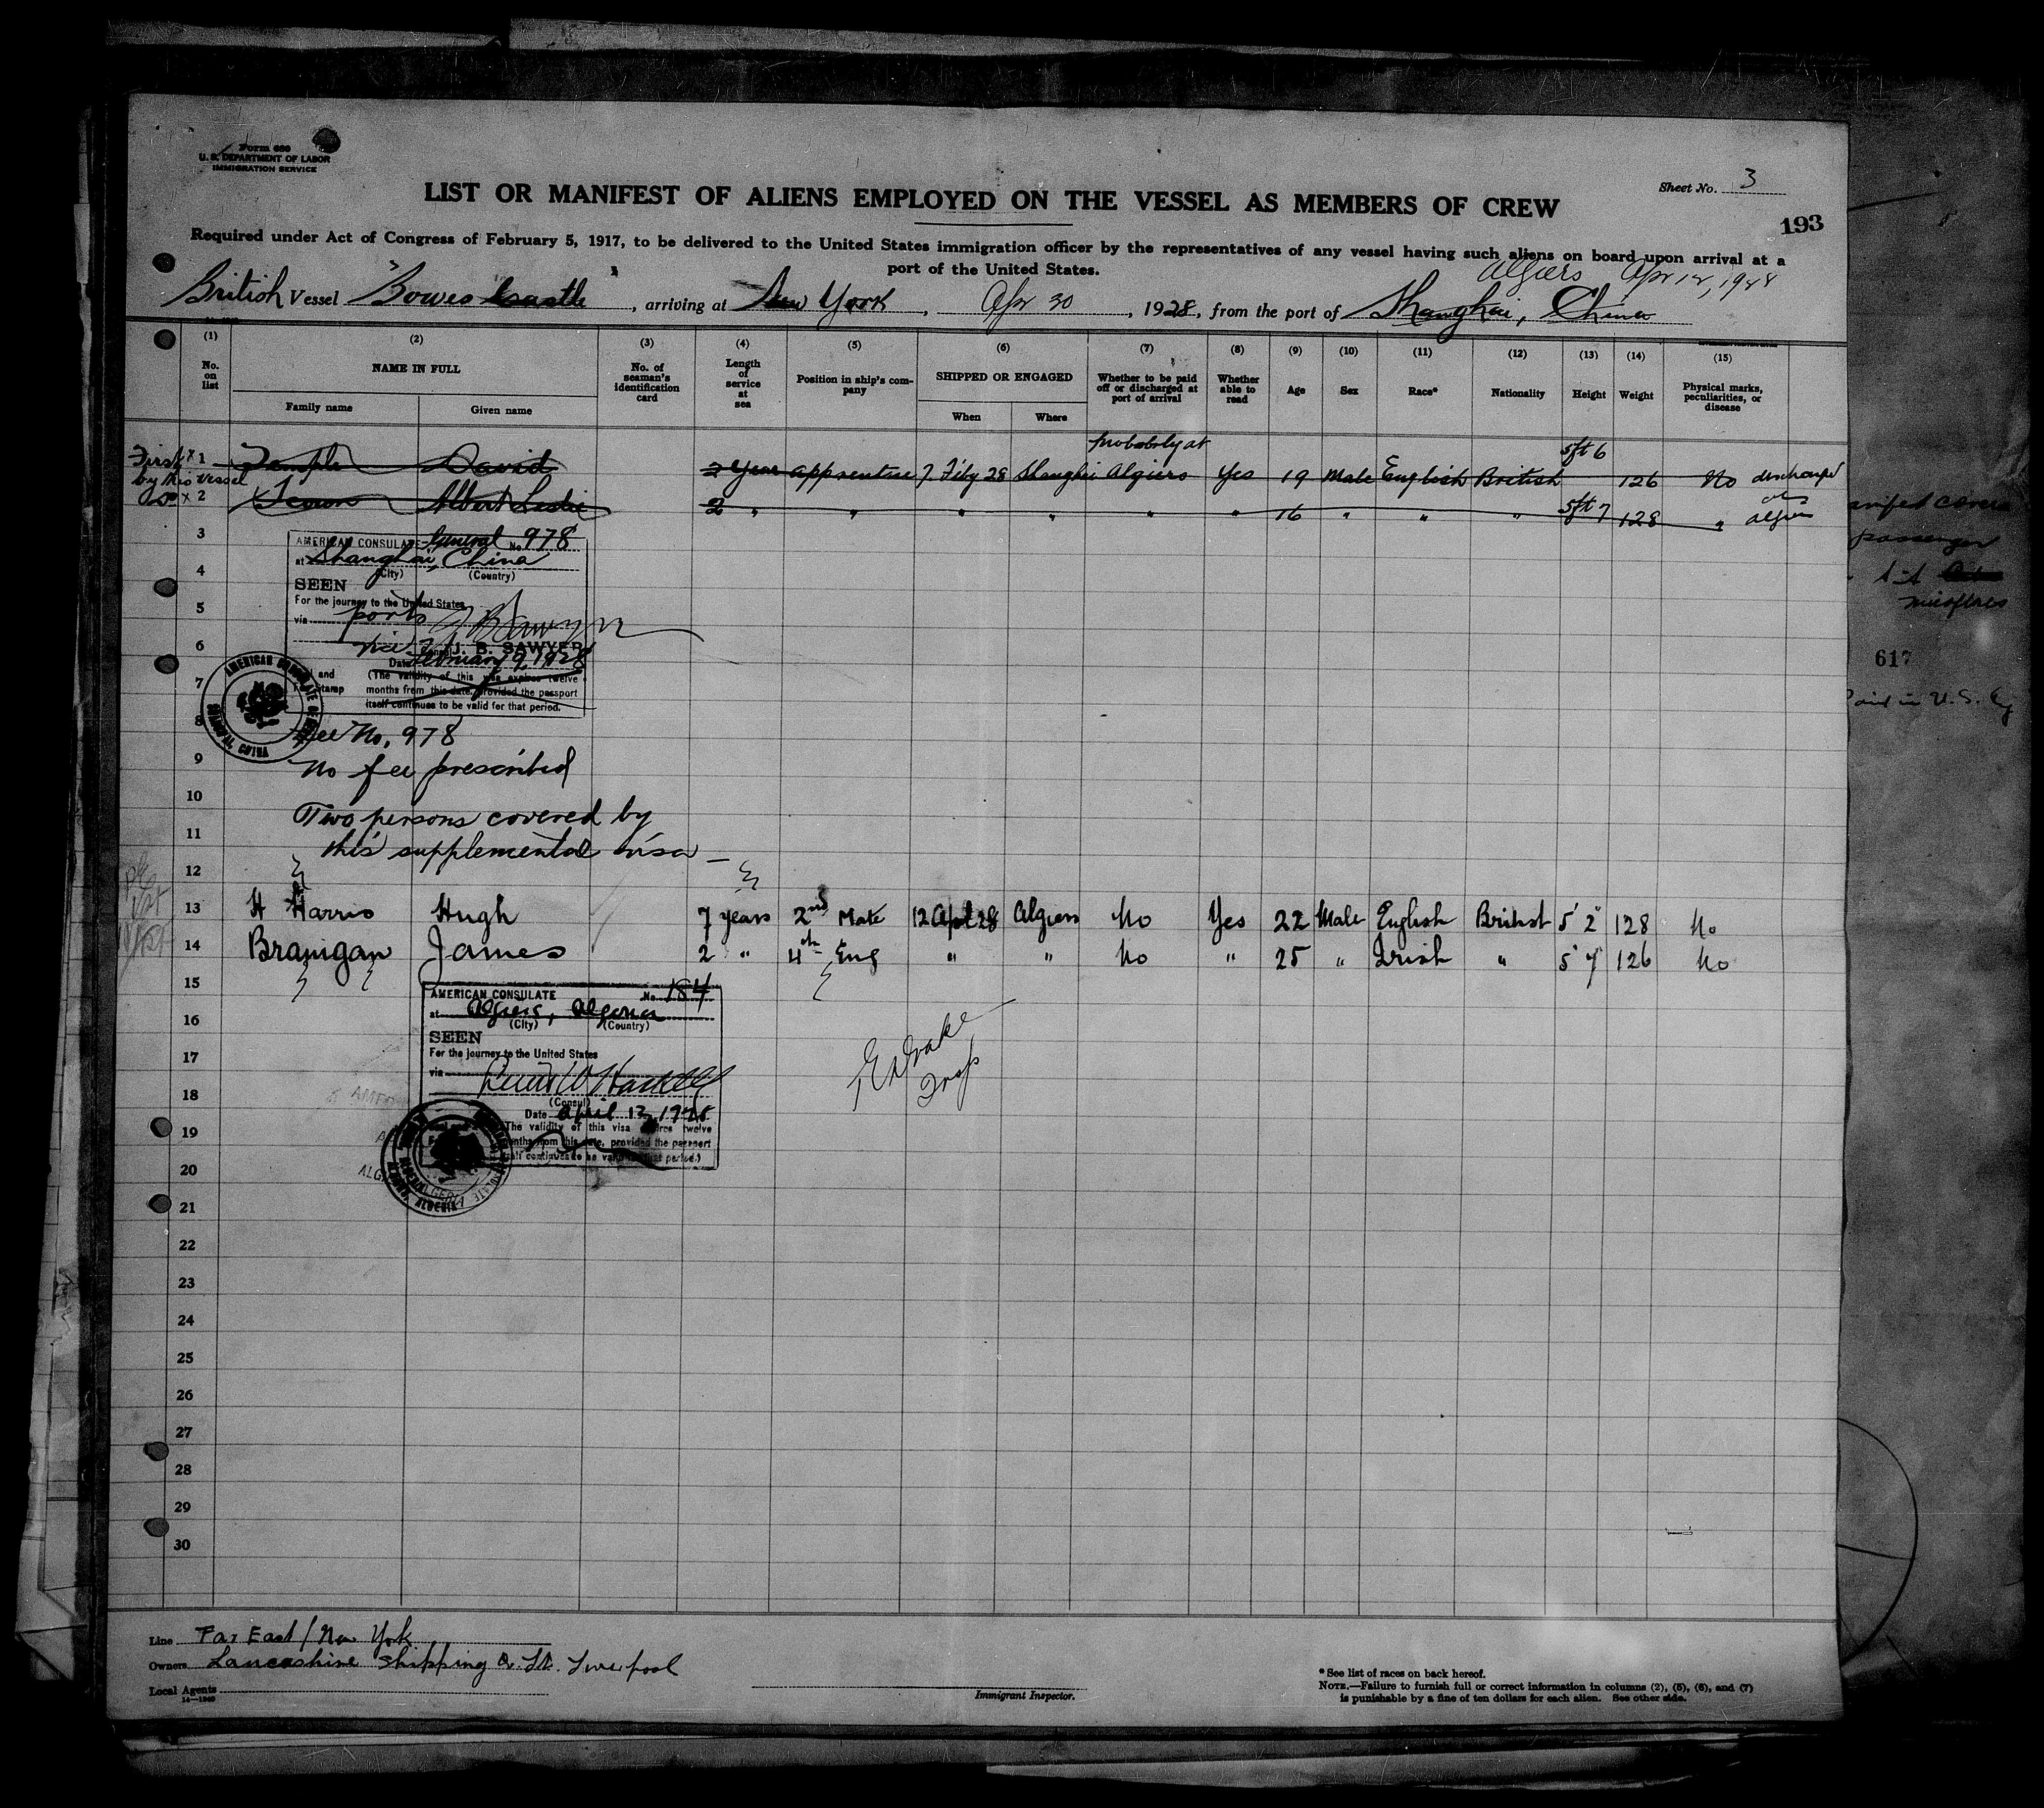 Form 680
U. S. DEPARTMENT OF LABOR
IMMIGRATION SERVICE
Sheet No. 3
LIST OR MANIFEST OF ALIENS EMPLOYED ON THE VESSEL AS MEMBERS OF CREW
193
Required under Act of Congress of February 5, 1917, to be delivered to the United States immigration officer by the representatives of any vessel having such aliens on board upon arrival at a
port of the United States.
Algiers Apr 12, 1928
British Vessel "Bowes Castle", arriving at New York, Apr 30, 1928, from the port of Shanghai, China
(1) (2) (3) (4) (5) (6) (7) (8) (9) (10) (11) (12) (13) (14) (15)
No. on list NAME IN FULL No. of seaman's identification card Length of service at sea Position in ship's company SHIPPED OR ENGAGED Whether to be paid off or discharged at port of arrival Whether able to read Age Sex Race* Nationality Height Weight Physical marks, peculiarities, or disease
Family name Given name When Where
First x 1 Temple David 2 Year apprentice 7 Feby 28 Shanghai Probably at Algiers Yes 19 Male English British 5ft 6 126 No discharged
by this vessel
do x 2 Albert Leslie 2 " " " " " " 16 " " " 5ft 7 128 " at Algiers
3
4
5
6
7
8
9
10
11
12
AMERICAN CONSULATE General No 978
at Shanghai, China
(City) (Country)
SEEN
For the journey to the United States
via ports
Vice Consul J. B. SAWYER
Date February 9, 1928
(The validity of this visa expires twelve
months from this date, provided the passport
itself continues to be valid for that period.
and
Stamp
AMERICAN CONSULATE GENERAL SHANGHAI, CHINA
Fee No. 978
No fee prescribed
Two persons covered by
this supplemental visa
13 H Harris Hugh 7 years 2nd Mate 12 Apl 28 Algiers No Yes 22 Male English British 5' 2" 128 No
14 Branigan James 2 " 4th Eng " " No " 25 " Irish " 5' 7" 126 No
15
16
17
18
19
20
21
22
23
24
25
26
27
28
29
30
AMERICAN CONSULATE No. 184
at Algiers, Algeria
(City) (Country)
SEEN
For the journey to the United States
via
(Consul)
Date April 12, 1928
(The validity of this visa expires twelve
months from this date, provided the passport
itself continues to be valid for that period.)
Drake
Insp
617
Paid in U.S.
passenger
Line Far East / New York
Owners Lancashire Shipping Co. Ld. Liverpool
Local Agents
14—1240
Immigrant Inspector.
* See list of races on back hereof.
NOTE.—Failure to furnish full or correct information in columns (2), (5), (6), and (7)
is punishable by a fine of ten dollars for each alien. See other side.